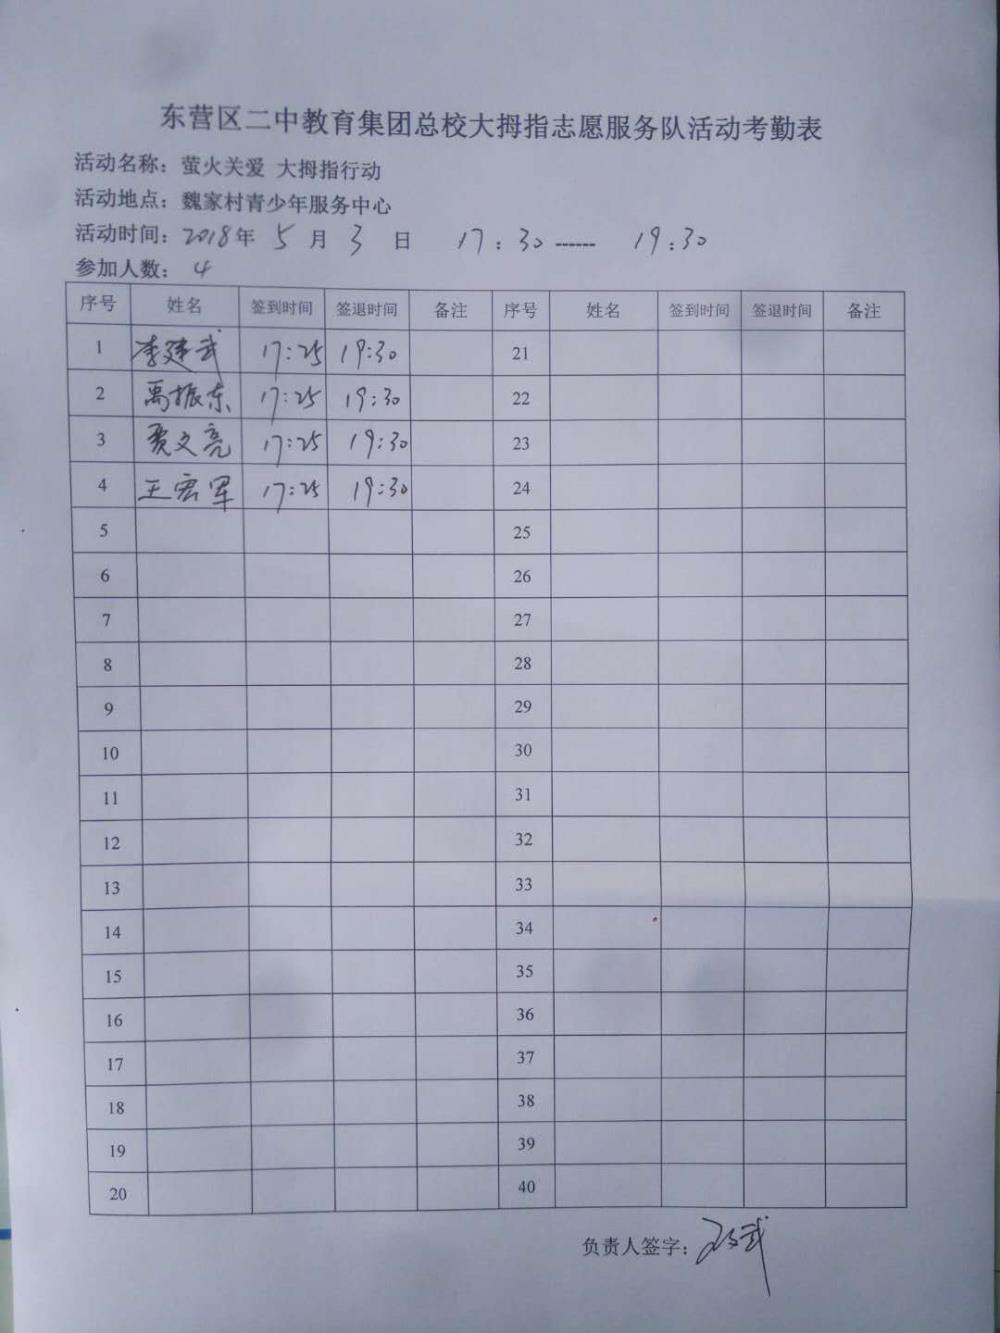 东营区二中教育集团总校大拇指志愿服务队活动考勤表
活动名称：萤火关爱 大拇指行动
活动地点：魏家村青少年服务中心
活动时间：2018年 5 月 3 日 17：30------ 19：30
参加人数： 4
序号 姓名 签到时间 签退时间 备注 序号 姓名 签到时间 签退时间 备注
1 李建武 17:25 19:30 21
2 禹振东 17:25 19:30 22
3 贾文亮 17:25 19:30 23
4 王宏军 17:25 19:30 24
5 25
6 26
7 27
8 28
9 29
10 30
11 31
12 32
13 33
14 34
15 35
16 36
17 37
18 38
19 39
20 40
负责人签字：